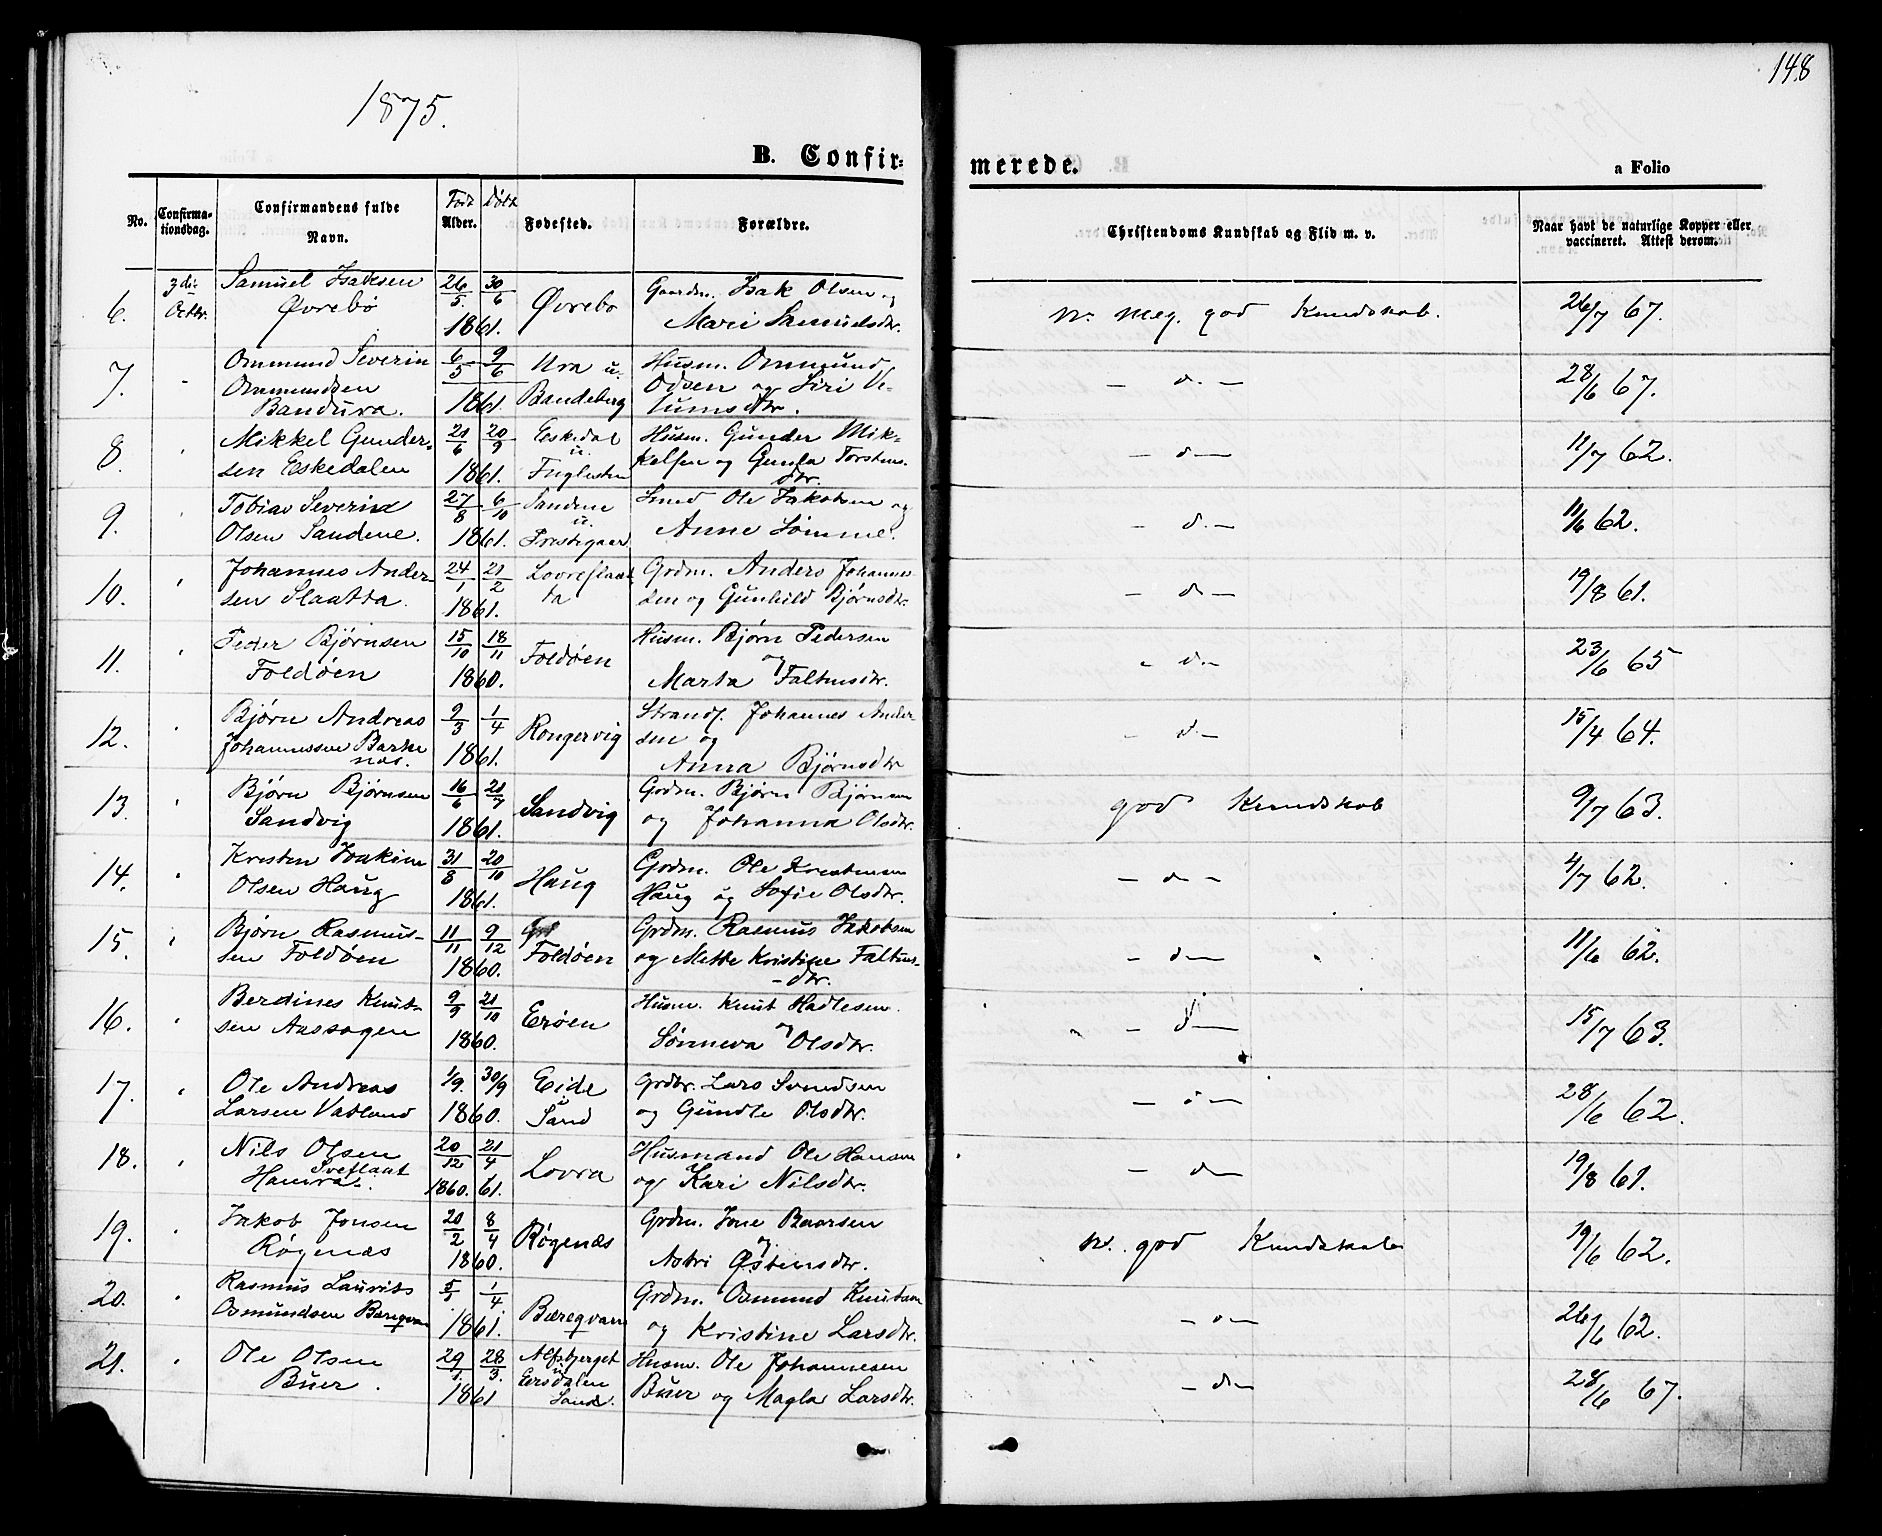 1875.
148
B. Confirmerede.
a Folio
No.
Confirmationsdag.
Confirmandens fulde Navn.
Født Døbt
Alder.
Fødested.
Forældre.
Christendoms Kundskab og Flid m. v.
Naar havt de naturlige Kopper eller vaccineret. Attest derom.
6. 3die Octbr. Samuel Isaksen Øvrebø 26/5 30/6 1861. Øvrebø Gaardm. Isak Olsen og Marie Samuelsdtr. n. meg. god Kundskab. 26/7 67.
7. " Ommund Severin Ommundsen Bandura. 6/5 9/6 1861. Ura u. Bandeberg Husm. Ommund Odsen og Siri Velumsdtr. – d. – 28/6 67.
8. " Mikkel Gundersen Eskedalen 21/6 20/9 1861. Eskedal u. Fuglesten Husm. Gunder Mikkelsen og Gunla Torstensdtr. – d – 11/7 62.
9. " Tobias Severin Olsen Sandene. 27/8 6/10 1861. Sandene u. Prestegaar. Smed Ole Jakobsen og Anne Sømme. – d. – 11/6 62.
10. " Johannes Andersen Slaatta. 24/1 21/2 1861. Lovreslaatta Grdm. Anders Johannessen og Gunhild Bjørnsdtr. – d. – 19/8 61.
11. " Peder Bjørnsen Foldøen 15/10 18/11 1860. Foldøen Husm. Bjørn Pedersen og Marta Faltinsdtr. – d. – 23/6 65
12. " Bjørn Andreas Johannessen Barkenæs. 9/3 1/4 1861. Rongervig Strands. Johannes Andersen og Anna Bjørnsdtr – d. – 15/4 64.
13. " Bjørn Bjørnsen Sandvig 16/6 21/7 1861. Sandvig Grdm. Bjørn Bjørnsen og Johanna Olsdtr. god Kundskab 9/7 63.
14. " Kristen Joakim Olsen Haug 31/8 20/10 1861. Haug Grdm. Ole Kristensen Haug og Sofie Olsdtr. – d – 4/7 62.
15. " Bjørn Rasmussen Foldøen 11/11 9/12 1860. Foldøen Grdm. Rasmus Jakobsen og Mette Kristine Faltinsdtr. – d – 11/6 62.
16. " Berdines Knutsen Aashagen 9/9 21/10 1860. Erøen Husm. Knut Hadlesen og Sønneva Olsdtr. – d – 15/7 63.
17. " Ole Andreas Larsen Vatland 1/9. 30/9 1860. Eide u Sand Grdbr. Lars Svendsen og Gundle Olsdtr. – d – 28/6 62.
18. " Nils Olsen Hamra Sveflaat 20/12 1860. 21/4 61. Lovra Husmand Ole Hansen og Kari Nilsdtr. – d – 19/8 61.
19. " Jakob Jonsen Røgenæs 20/2 8/4 1860. Røgenæs Grdm. Jone Baarsen og Astri Østensdtr. n. god Kundskab 19/6 62.
20. " Rasmus Laurits Osmundsen Bæreqvam 5/1 1/4 1861. Bæreqvam Grdm. Osmund Knutsen og Kristine Larsdtr. – d – 26/6 62.
21. " Ole Olsen Buer. 29/1. 28/3. 1861 Alfsbjerget u Eersdalen Sand. Husm. Ole Johannesen Buer og Magla Larsdtr. – d – 28/6 67.